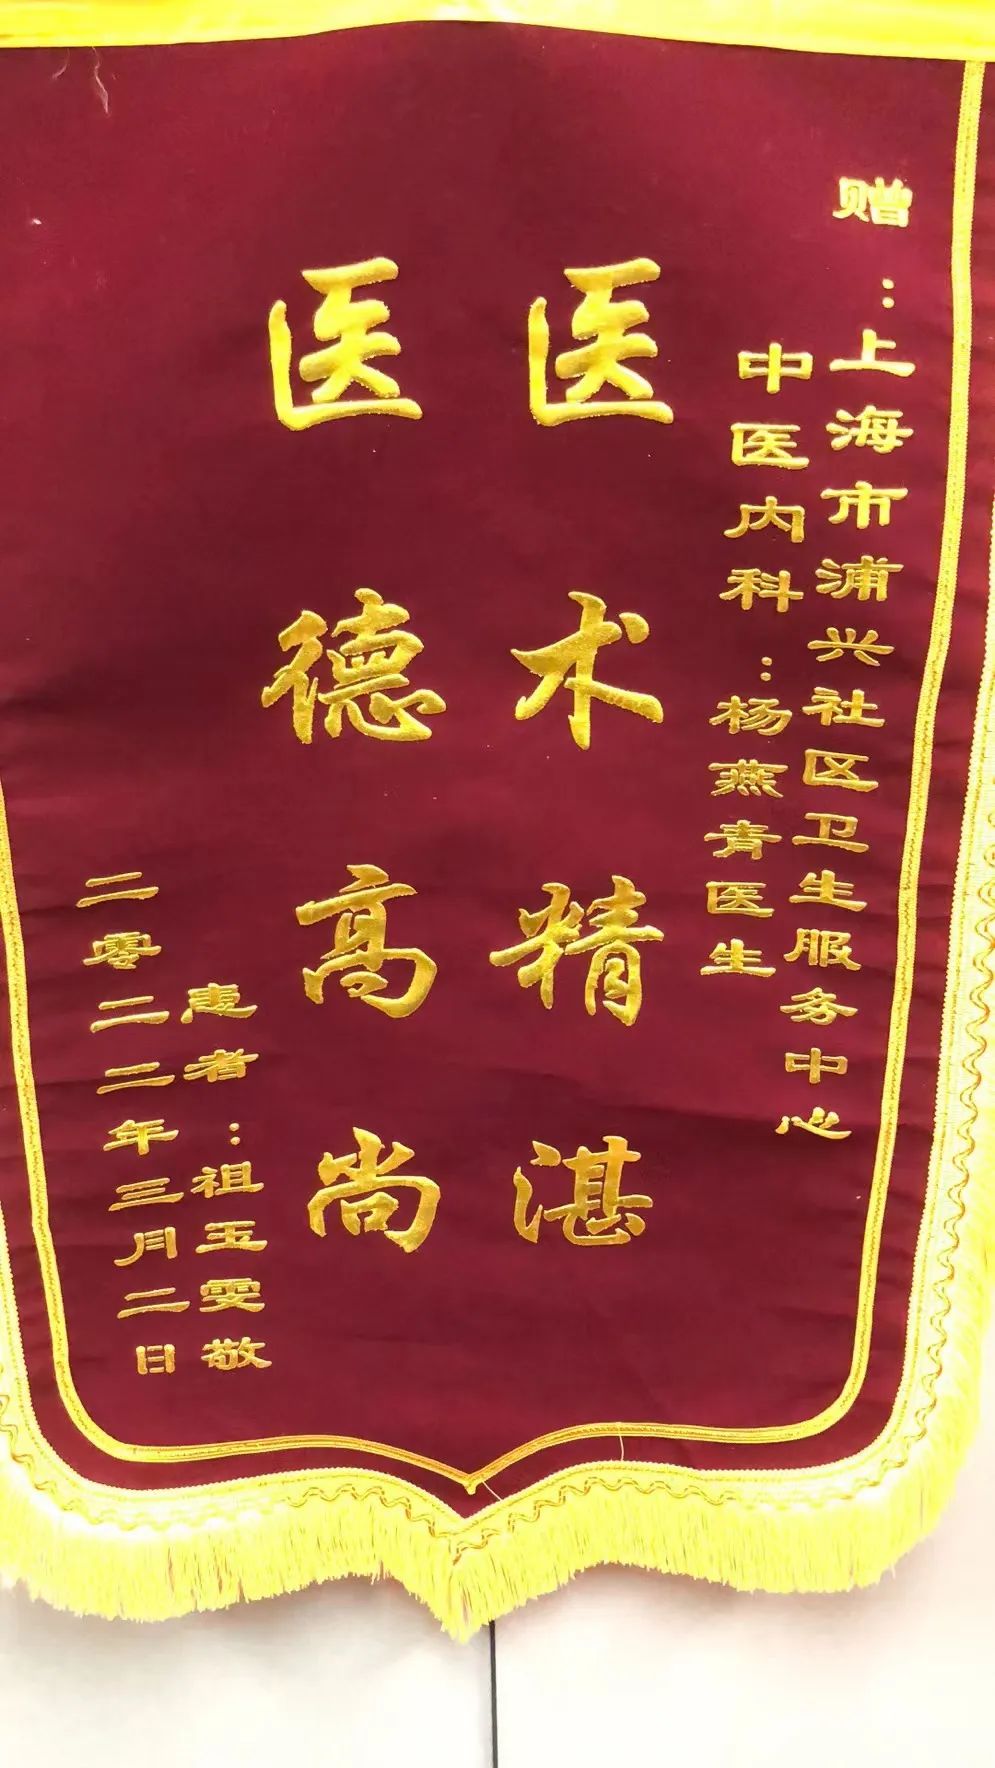 赠：上海市浦兴社区卫生服务中心
中医内科：杨燕青医生
医术精湛
医德高尚
患者：祖玉雯敬
二零二二年三月二日